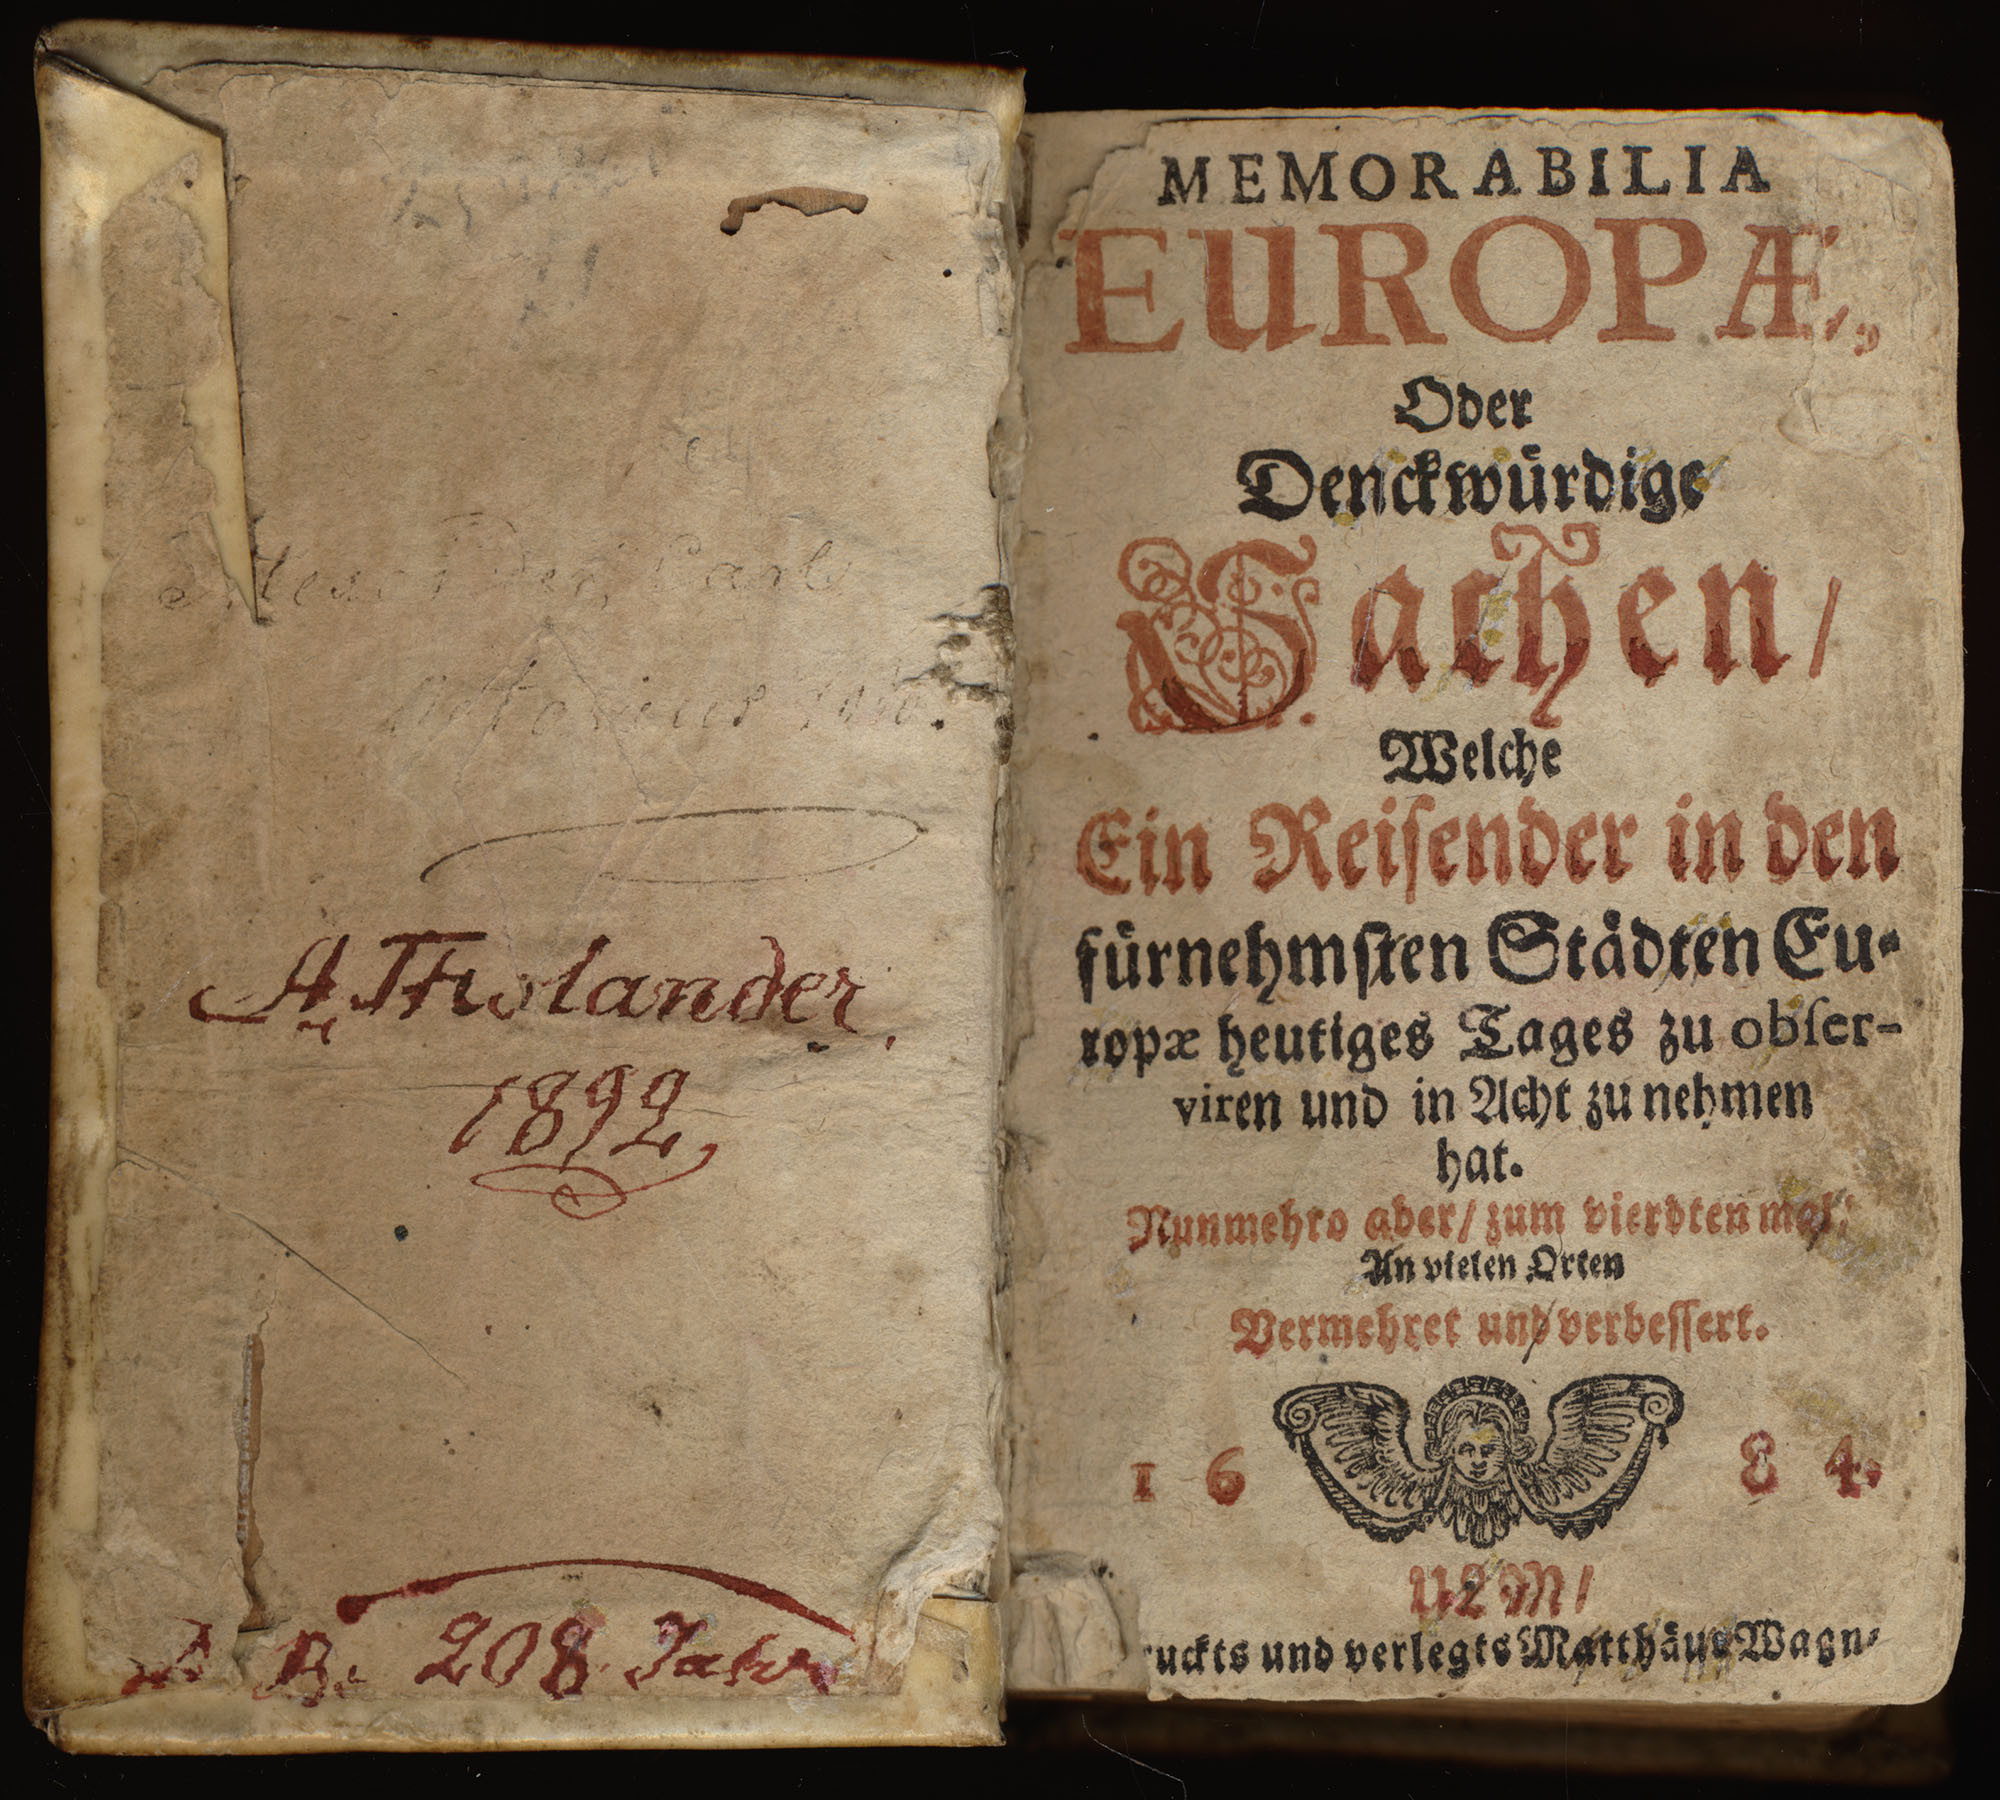 A. Tholander.
1892
N B. 208 Jahr
MEMORABILIA
EUROPÆ,
Oder
Denckwürdige
Sachen/
Welche
Ein Reisender in den
fürnehmſten Städten Eu-
ropæ heutiges Tages zu obſer-
viren und in Acht zu nehmen
hat.
Nunmehro aber/ zum vierdten mal/
An vielen Orten
Vermehret und verbeſſert.
1 6 8 4.
ULM/
ruckts und verlegts Matthäus Wagn-